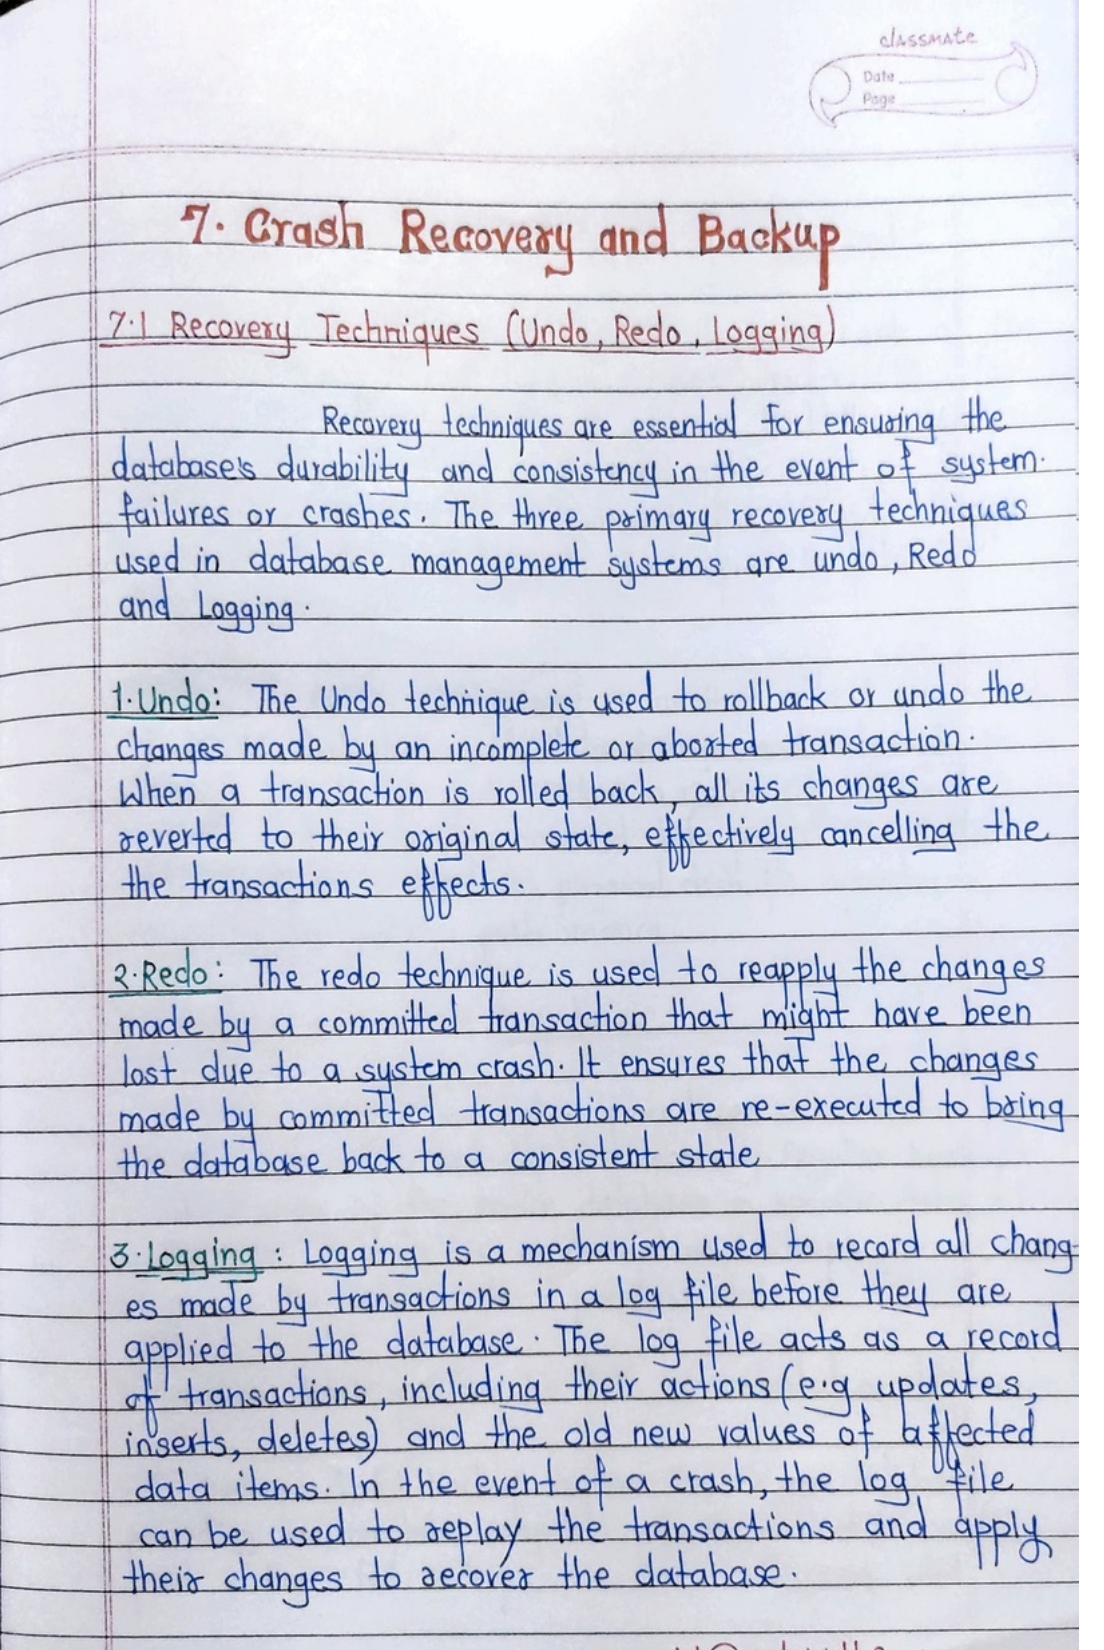 classmate
Date
Page
7. Crash Recovery and Backup
7.1 Recovery Techniques (Undo, Redo, Logging)
Recovery techniques are essential for ensuring the
database's durability and consistency in the event of system
failures or crashes. The three primary recovery techniques
used in database management systems are undo, Redo
and Logging.
1. Undo: The Undo technique is used to rollback or undo the
changes made by an incomplete or aborted transaction.
When a transaction is rolled back, all its changes are
reverted to their original state, effectively cancelling the
the transactions effects.
2. Redo: The redo technique is used to reapply the changes
made by a committed transaction that might have been
lost due to a system crash. It ensures that the changes
made by committed transactions are re-executed to bring
the database back to a consistent state
3. Logging: Logging is a mechanism used to record all chang-
es made by transactions in a log file before they are
applied to the database. The log file acts as a record
of transactions, including their actions (e.g updates,
inserts, deletes) and the old new values of affected
data items. In the event of a crash, the log file
can be used to replay the transactions and apply
their changes to recover the database.